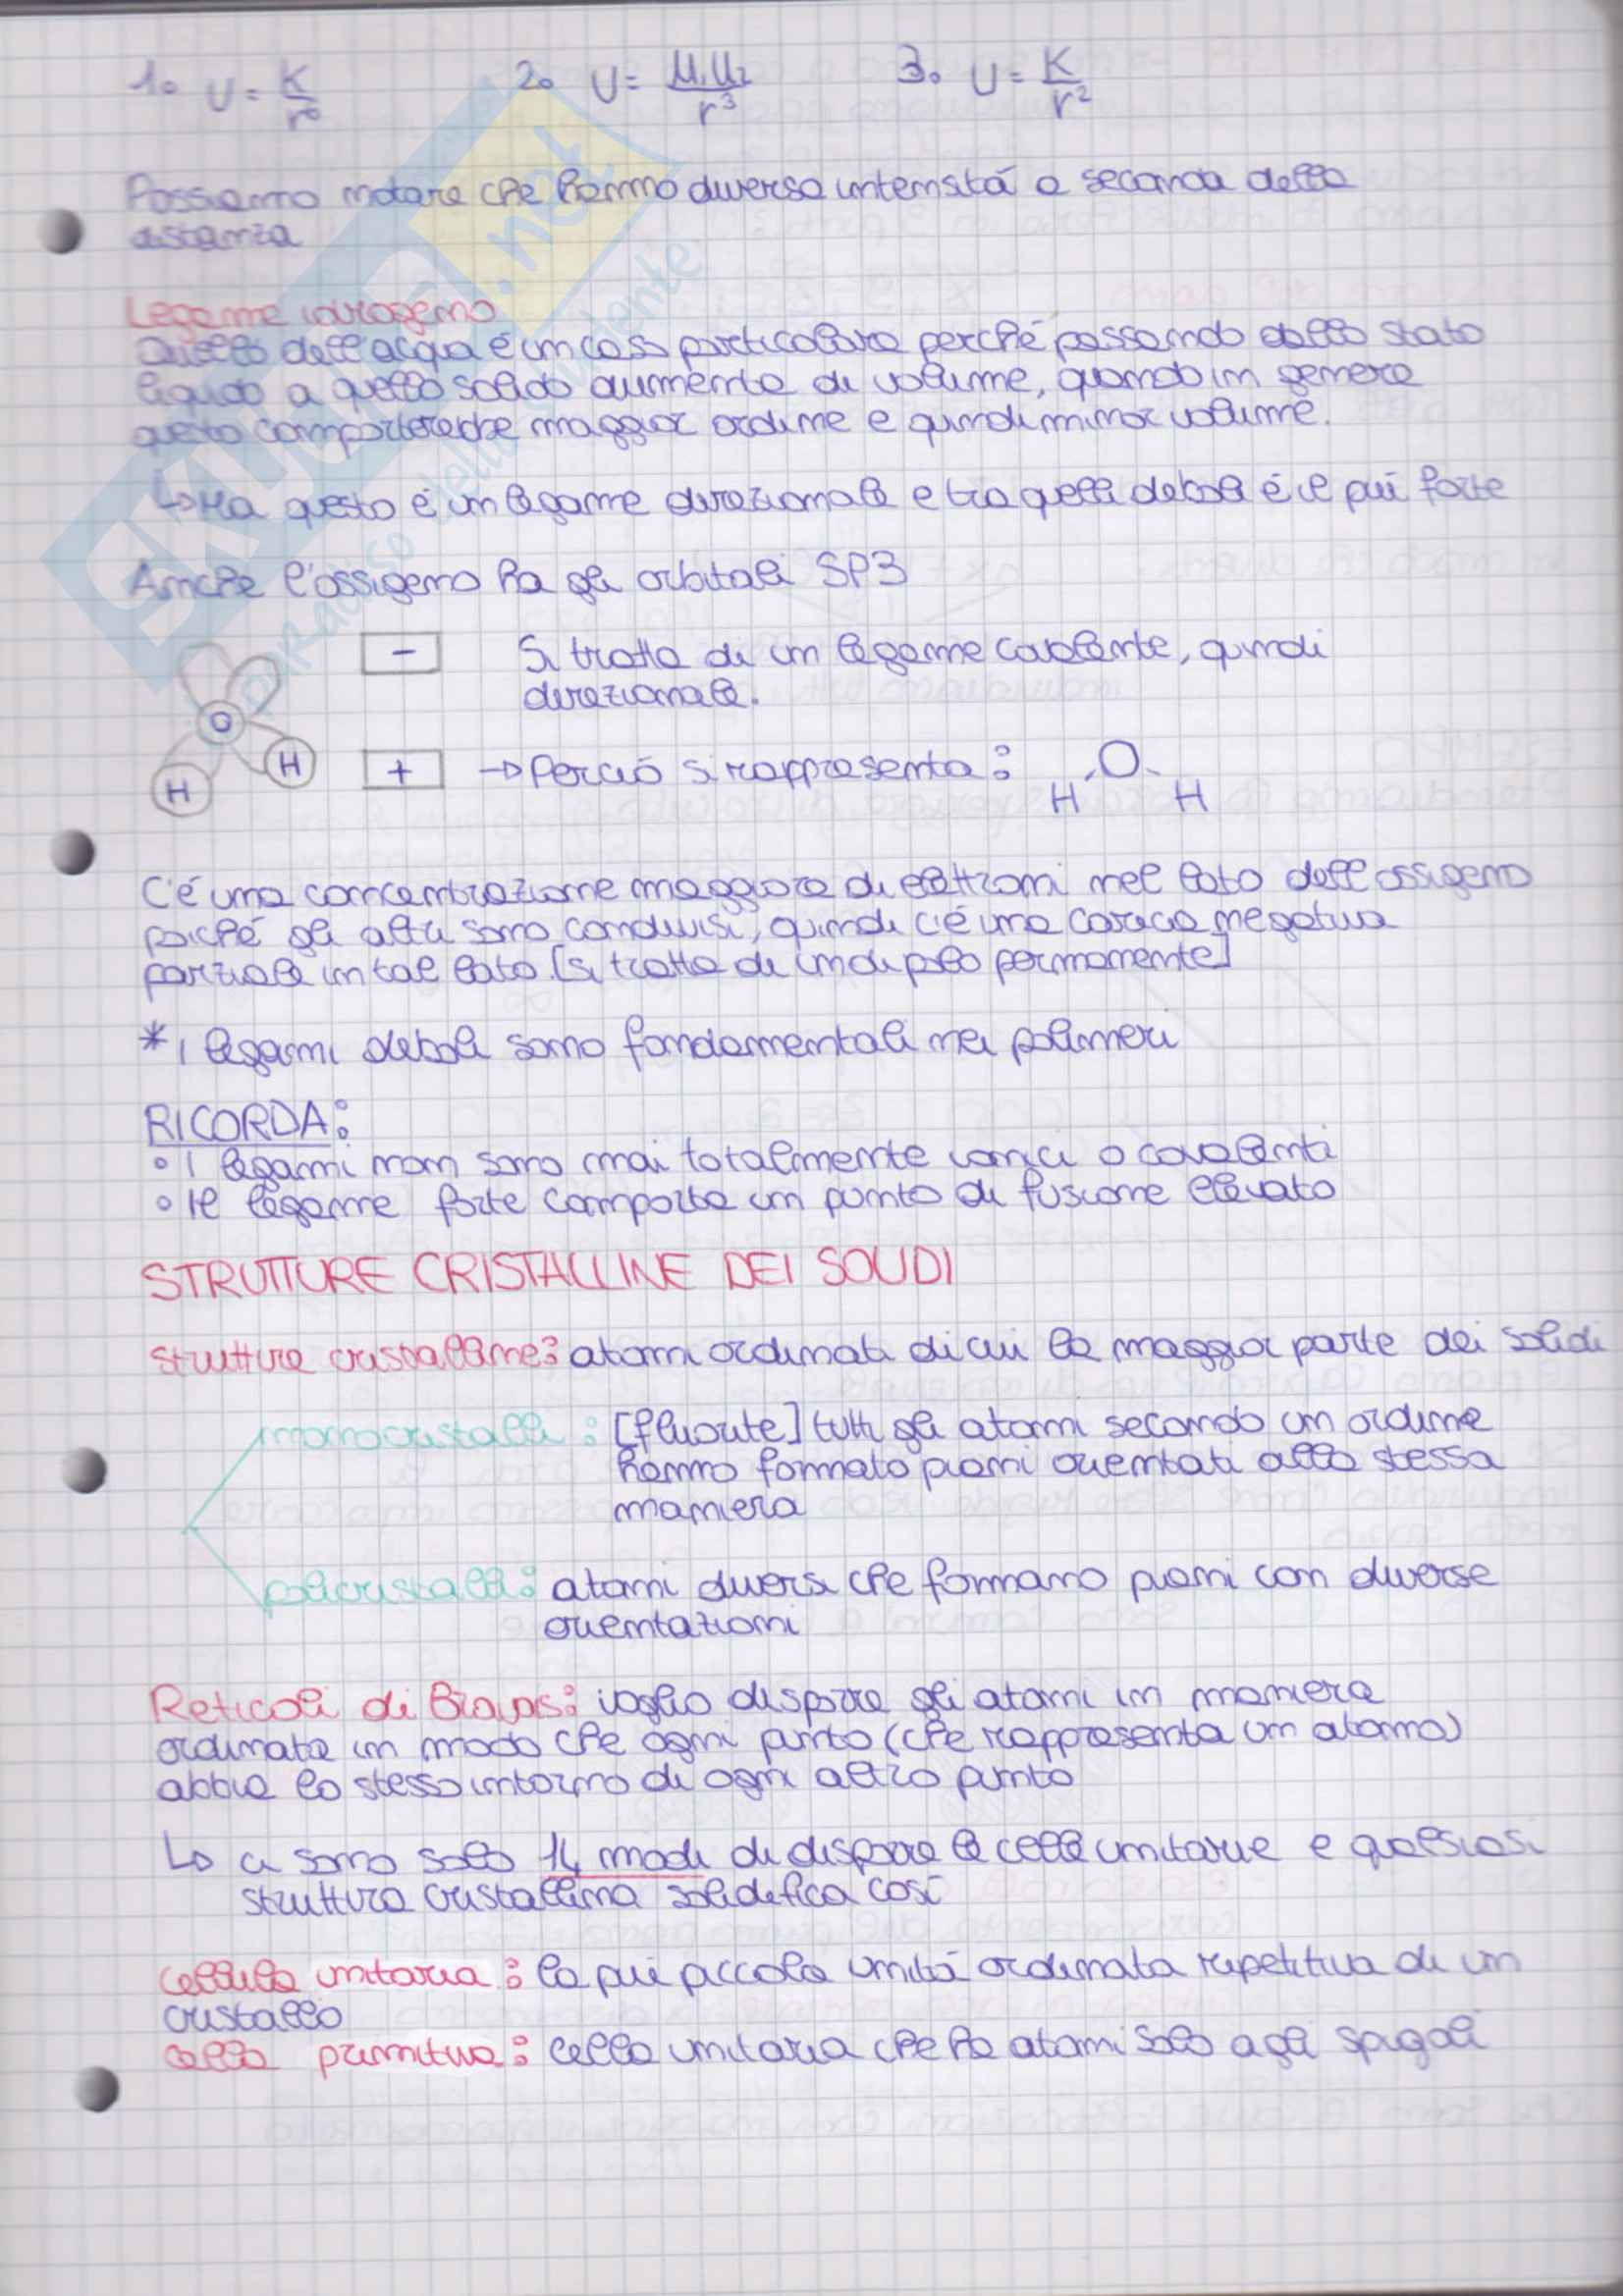 1. U = K/r⁶ 2. U = μ₁μ₂/r³ 3. U = K/r²
Possiamo notare che hanno diversa intensità a seconda della
distanza
Legame idrogeno
Quello dell'acqua é un caso particolare perché passando dallo stato
liquido a quello solido aumenta di volume, quando in genere
questo comporterebbe maggior ordine e quindi minor volume.
↳ Ma questo é un legame direzionale e tra quelli deboli é il piú forte
Anche l'ossigeno ha gli orbitali SP3
- Si tratta di un legame covalente, quindi
direzionale.
O
H H
+ → Perció si rappresenta: O
H H
C'é una concentrazione maggiore di elettroni nel lato dell'ossigeno
poiché gli altri sono condivisi, quindi c'é una carica negativa
parziale in tal lato [si tratta di un dipolo permanente]
* I legami deboli sono fondamentali nei polimeri
RICORDA:
• I legami non sono mai totalmente ionici o covalenti
• Il legame forte comporta un punto di fusione elevato
STRUTTURE CRISTALLINE DEI SOLIDI
strutture cristalline: atomi ordinati di cui la maggior parte dei solidi
monocristalli: [fluorite] tutti gli atomi secondo un ordine
hanno formato piani orientati alla stessa
maniera
policristalli: atomi diversi che formano piani con diverse
orientazioni
Reticoli di Bravais: voglio disporre gli atomi in maniera
ordinata in modo che ogni punto (che rappresenta un atomo)
abbia lo stesso intorno di ogni altro punto
↳ ci sono solo 14 modi di disporre le celle unitarie e qualsiasi
struttura cristallina solidifica cosí
cellula unitaria: la piú piccola unitá ordinata ripetitiva di un
cristallo
cella primitiva: cella unitaria che ha atomi solo agli spigoli
SKUOLA.net
paradiso dello studente